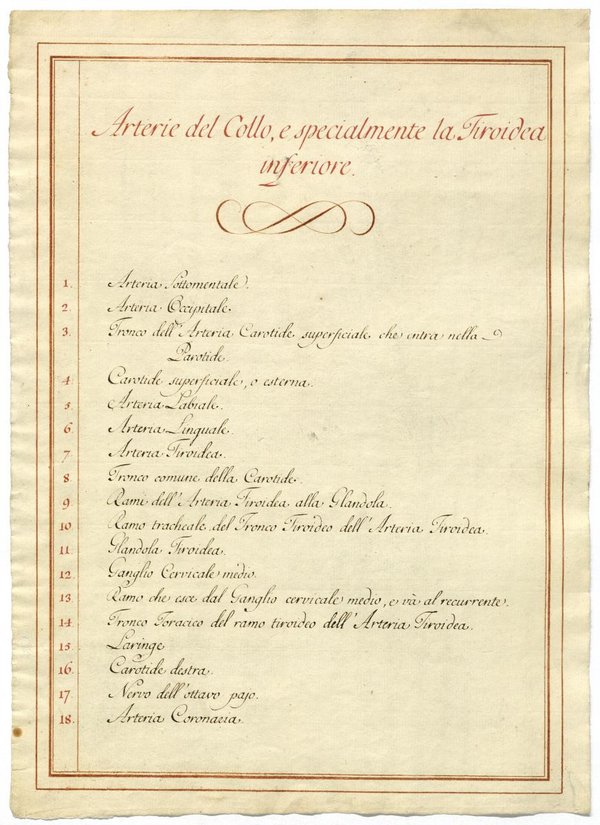 Arterie del Collo, e specialmente la Tiroidea
inferiore.
1. Arteria Sottomentale.
2. Arteria Occipitale.
3. Tronco dell' Arteria Carotide superficiale che entra nella
Parotide.
4. Carotide superficiale, o esterna.
5. Arteria Labiale.
6. Arteria Linguale.
7. Arteria Tiroidea.
8. Tronco comune della Carotide.
9. Rami dell' Arteria Tiroidea alla Glandola.
10. Ramo tracheale del Tronco Tiroideo dell' Arteria Tiroidea.
11. Glandola Tiroidea.
12. Ganglio Cervicale medio.
13. Ramo che esce dal Ganglio cervicale medio, e và al recurrente.
14. Tronco Toracico del ramo tiroideo dell' Arteria Tiroidea.
15. Laringe
16. Carotide destra.
17. Nervo dell' ottavo pajo.
18. Arteria Coronaria.